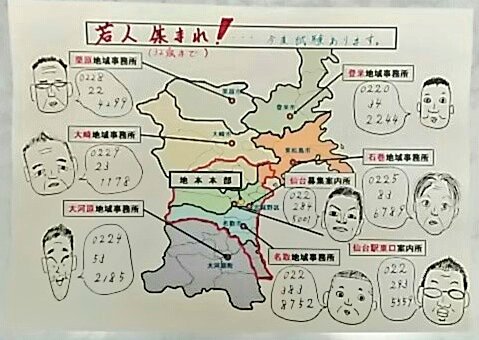 若人集まれ!
····今週試験あります。
(32歳まで)
栗原地域事務所
0228
22
4299
登米地域事務所
0220
34
2244
栗原市
登米市
大崎地域事務所
0229
23
1178
大崎市
東松島市
石巻地域事務所
0225
83
6789
地本本部
仙台募集案内所
022
284
5001
大河原地域事務所
0224
53
2185
名取市
大河原町
仙台駅東口案内所
022
293
5559
名取地域事務所
022
383
8752